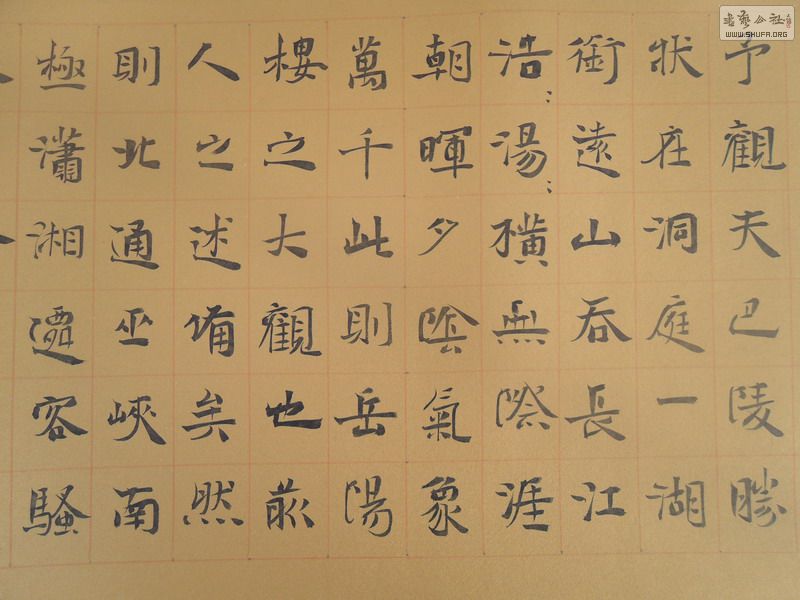 予觀夫巴陵勝
狀在洞庭一湖
銜遠山吞長江
浩〻湯〻橫無際涯
朝暉夕陰氣象
萬千此則岳陽
樓之大觀也前
人之述備矣然
則北通巫峽南
極瀟湘遷客騷
書藝公社
WWW.SHUFA.ORG